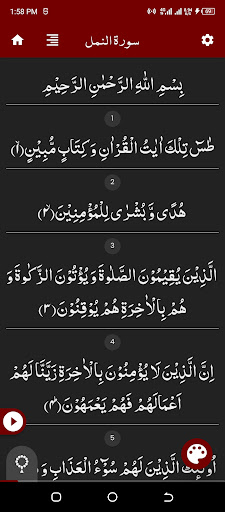 1:58 PM
89
سورة النمل
بِسْمِ اللهِ الرَّحْمٰنِ الرَّحِيْمِ
1
طٰسٓ تِلْكَ اٰيٰتُ الْقُرْاٰنِ وَ كِتَابٍ مُّبِيْنٍ(۱)
2
هُدًى وَّ بُشْرٰى لِلْمُؤْمِنِيْنَ(۲)
3
الَّذِيْنَ يُقِيْمُوْنَ الصَّلٰوةَ وَ يُؤْتُوْنَ الزَّكٰوةَ وَ
هُمْ بِالْاٰخِرَةِ هُمْ يُوْقِنُوْنَ(۳)
4
اِنَّ الَّذِيْنَ لَا يُؤْمِنُوْنَ بِالْاٰخِرَةِ زَيَّنَّا لَهُمْ
اَعْمَالَهُمْ فَهُمْ يَعْمَهُوْنَ(۴)
5
اُولٰٓىٕكَ الَّذِيْنَ لَهُمْ سُوْٓءُ الْعَذَابِ وَ